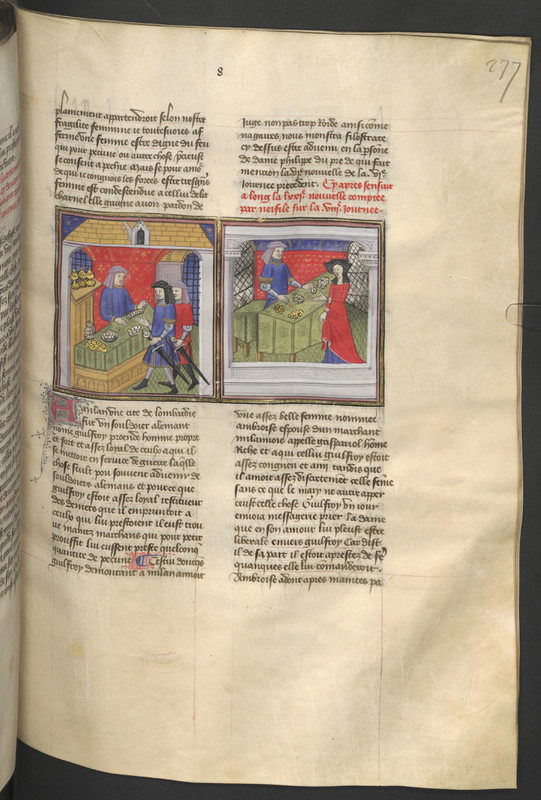 8
277
plainement appartendroit selon nostre
fragilite feminine ie toutesuoies af
ferme une femme estre digne du feu
qui pour pecune ou autre chose
se consent a peche Mais se pour amo
de qui ie congnois les forces estre tresgrãs
femme est condescendue a cellui delit
charnel elle gaigne auoir pardon de
Iuge non pas trop roide ainsi cõme
nagaires nous monstra filostrate
cy dessus estre aduenu en la psõne
de dame philippe du pre de qui fait
mencion la nouvelle de la
Iournee precedent. Cy apres sensuit
a long la nouvelle comptee
par neifile sur la Iournee
A milan une cite de lombardie
fut un souldoier alemant
nome gulfroy preude homme propre
et fort et assez loyal de ceulx a qui il
se mettoit en service de guerre laqlle
chose seult pou souvent aduenir de
souldoiers alemans et pource que
gulfroy estoit assez loyal restitueur
des deniers que il empruntoit a
ceulx qui lui prestoient il eust trou
ue maintz marchans qui pour petit
prouffit lui eussent preste quelcõq
quantite de pecune Cestui doncqs
gulfroy demourant a milan amoit
une assez belle femme nommee
ambroise espouse dun marchant
milannois apelle gasparriol home
riche et a qui cellui gulfroy estoit
assez congneu et ami tandis que
il amoit assez discretement celle feme
sans ce que le mary ne autre apper
ceust celle chose Gulfroy un iour
enuoia messagerie prier la dame
que en son amour lui pleust estre
liberale enuers gulfroy Car dist
il de sa part il estoit aprestez de fe
quanques elle lui comanderoit.
Ambroise adont apres maintes pa